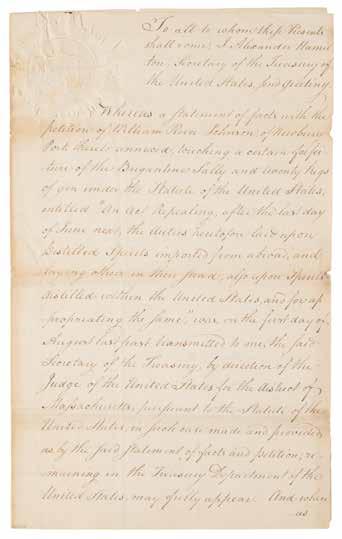 To all to whom these Presents
shall come, I Alexander Hamil-
ton, Secretary of the Treasury of
the United States, send greeting.
Whereas a statement of facts with the
petition of William Peirce Johnson of Newbury
Port thereto annexed, touching a certain forfei-
ture of the Brigantine Sally and twenty kegs
of gin under the Statute of the United States,
entitled "An Act Repealing, after the last day
of June next, the duties heretofore laid upon
Distilled Spirits imported from abroad, and
laying others in their stead, also upon Spirits
distilled within the United States, and for ap
propriating the same", was on the first day of
August last past transmitted to me, the said
Secretary of the Treasury, by direction of the
Judge of the United States for the district of
Massachusetts, pursuant to the Statute of the
United States, in such case made and provided,
as by the said Statement of facts and petition, re-
maining in the Treasury Department of the
United States, may fully appear. And where
as